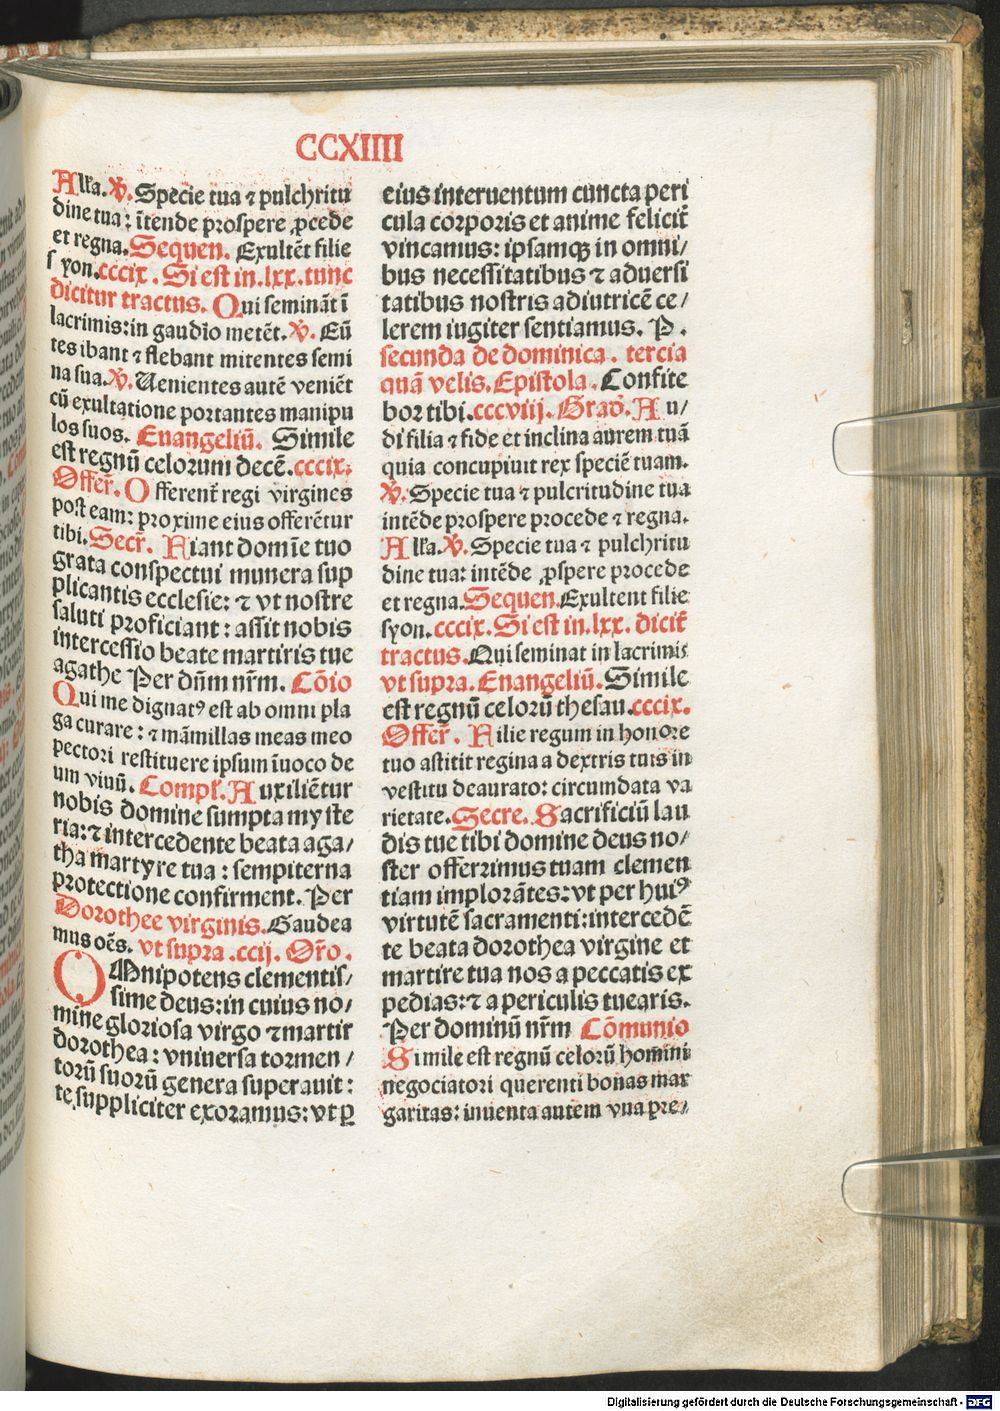 CCXIIII
Alľa. v̇. Specie tua ⁊ pulchritu
dine tua: ĩtende prospere ꝓcede
et regna. Sequen. Exultẽt filie
syon.cccix. Si est in.lxx.tunc
dicitur tractus. Qui seminãt ĩ
lacrimis:in gaudio metẽt. v̇. Eũ
tes ibant ⁊ flebant mitentes semi
na sua. v̇. Uenientes autẽ veniẽt
cũ exultatione portantes manipu
los suos. Euangeliũ. Simile
est regnũ celorum decẽ.cccix.
Offer̃. Offerent̃ regi virgines
post eam: proxime eius offerẽtur
tibi. Secr̃. Fiant domĩe tuo
grata conspectui munera sup
plicantis ecclesie: ⁊ vt nostre
saluti proficiant: assit nobis
intercessio beate martiris tue
agathe Per dñm nr̃m. Cõio
Qui me dignatꝰ est ab omni pla
ga curare: ⁊ mãmillas meas meo
pectori restituere ipsum ĩuoco de
um viuũ. Compl̃. Auxiliẽtur
nobis domine sumpta myste
ria:⁊ intercedente beata aga/
tha martyre tua: sempiterna
protectione confirment. Per
Dorothee virginis. Gaudea
mus oẽs. vt supra.ccij. Or̃o.
OMnipotens clementis/
sime deus:in cuius no/
mine gloriosa virgo ⁊ martir
dorothea: vniuersa tormen/
torũ suorũ genera superauit:
te suppliciter exoramus: vt ꝑ
eius interuentum cuncta peri
cula corporis et anime felicit̃
vincamus: ipsamqꝫ in omni/
bus necessitatibus ⁊ aduersi
tatibus nostris adiutricẽ ce/
lerem iugiter sentiamus. P.
secunda de dominica. tercia
quã velis. Epistola. Confite
bor tibi.cccviij. Grad̃. Au/
di filia ⁊ fide et inclina aurem tuã
quia concupiuit rex speciẽ tuam.
v̇. Specie tua ⁊ pulcritudine tua
intẽde prospere procede ⁊ regna.
Alľa. v̇. Specie tua ⁊ pulchritu
dine tua: intẽde ꝓspere procede
et regna. Sequen. Exultent filie
syon.cccix. Si est in.lxx. dicit̃
tractus. Qui seminat in lacrimis
vt supra. Euangeliũ. Simile
est regnũ celorũ thesau.cccix.
Offer̃. Filie regum in honore
tuo astitit regina a dextris tuis in
vestitu deaurato: circumdata va
rietate. Secre. Sacrificiũ lau
dis tue tibi domine deus no/
ster offerrimus tuam clemen
tiam implorãtes: vt per huiꝰ
virtutẽ sacramenti:intercedẽ
te beata dorothea virgine et
martire tua nos a peccatis ex
pedias:⁊ a periculis tuearis.
Per dominũ nr̃m Cõmunio
Simile est regnũ celorũ homini
negociatori querenti bonas mar
garitas: inuenta autem vna pre/
Digitalisierung gefördert durch die Deutsche Forschungsgemeinschaft - DFG